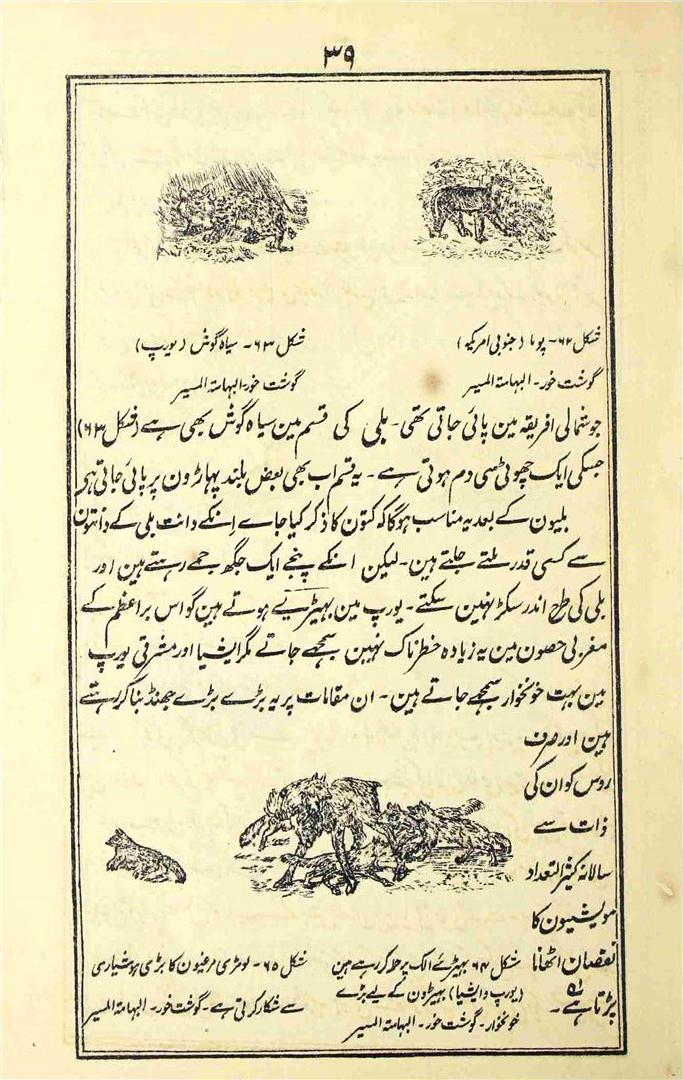 ۳۹
شکل ۶۲- پوما (جنوبی امریکہ)
گوشت خور- البہامۃ المسیر
شکل ۶۳- سیاہ گوش (یورپ)
گوشت خور- البہامۃ المسیر
جو شمالی افریقہ مین پائی جاتی تھی- بلی کی قسم مین سیاہ گوش بھی ہے (شکل ۶۳)
جسکی ایک چھوٹی سی دم ہوتی ہے- یہ قسم اب بھی بعض بلند پہاڑون پر پائی جاتی ہی
بلیون کے بعد یہ مناسب ہوگا کہ کتون کا ذکر کیا جاے اِنکے دانت بلی کے دانتون
سے کسی قدر ملتے جلتے ہین- لیکن انکے پنجے ایک جگھ جمے رہتے ہین اور
بلی کی طرح اندر سکڑ نہین سکتے- یورپ مین بھیڑیے ہوتے ہین گو اس براعظم کے
مغربی حصون مین یہ زیادہ خطرناک نہین سمجھے جاتے مگر ایشیا اور مشرقی یورپ
مین بہت خونخوار سمجھے جاتے ہین- ان مقامات پر یہ بڑے بڑے جھنڈ بنا کر رہتے
ہین اور صرف
روس کو ان کی
ذات سے
سالانہ کثیر التعداد
مویشیون کا
نقصان اٹھانا
پڑتا ہے-
شکل ۶۴ بھیڑئے الک پر حملہ کر رہے ہین
(یورپ و ایشیا) بھیڑون کے لیے بڑے
خونخوار- گوشت خور- البہامۃ المسیر
شکل ۶۵- لومڑی مرغیون کا بڑی ہوشیاری
سے شکار کرتی ہے- گوشت خور- البہامۃ المسیر